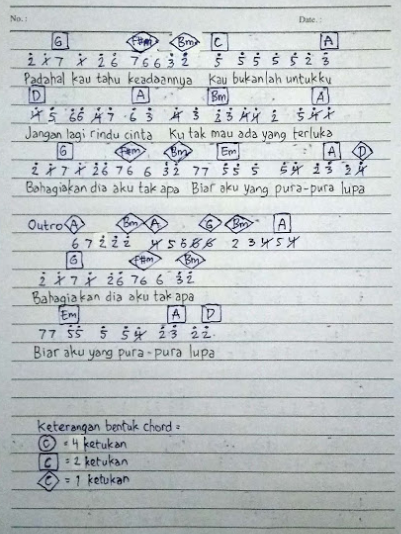 No. :
Date. :
G F#m Bm C A
2̇ 1̸̇ 7 1̸̇ 2̇6 766 3̇2̇ 5̇ 5̇ 5̇ 5̇ 5̇ 2̇ 3̇
Padahal kau tahu keadaannya kau bukanlah untukku
D A Bm A
Jangan lagi rindu cinta Ku tak mau ada yang terluka
G F#m Bm Em A D
Bahagiakan dia aku tak apa Biar aku yang pura-pura lupa
Outro A Bm A G Bm A
G F#m Bm
Bahagiakan dia aku tak apa
Em A D
77 5̇5̇ 5̇ 5̇4̸̇ 2̇3̇ 2̇2̇
Biar aku yang pura-pura lupa
Keterangan bentuk chord =
C = 4 ketukan
C = 2 ketukan
C = 1 ketukan